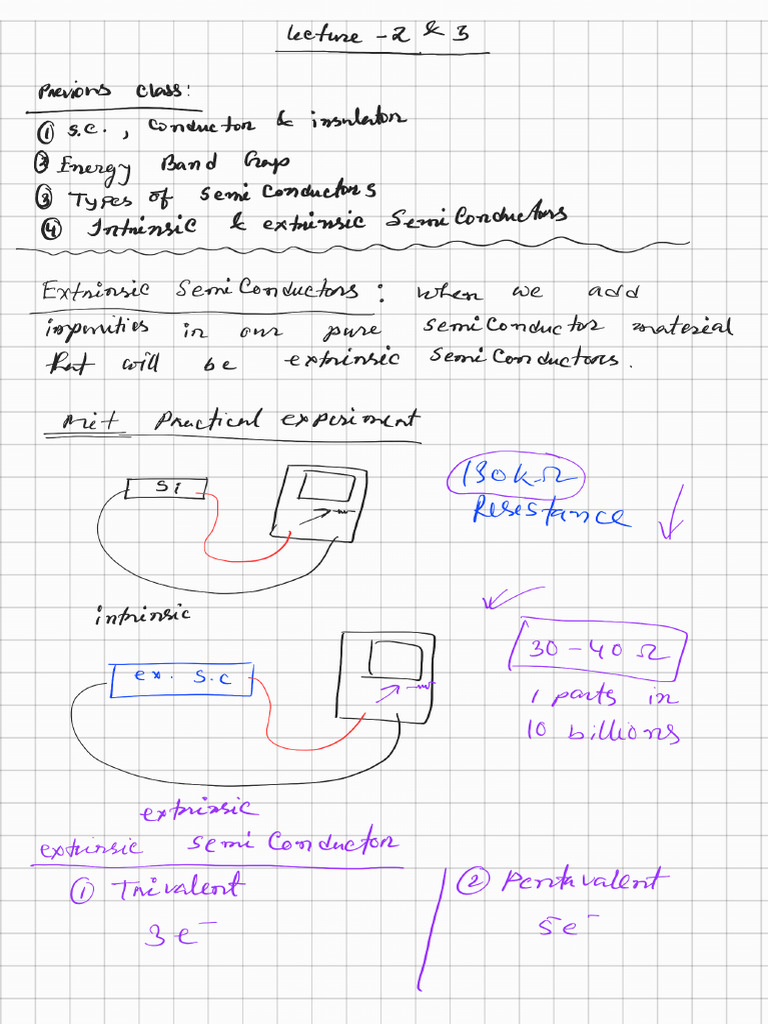 Lecture - 2 & 3
Previous Class:
① S.C., Conductor & insulator
② Energy Band Gap
③ Types of Semi Conductors
④ Intrinsic & extrinsic Semi Conductors
Extrinsic Semi Conductors: When we add
impurities in our pure semiconductor material
that will be extrinsic semiconductors.
MIT Practical experiment
Si
130kΩ
Resestance
intrinsic
30 - 40 Ω
ex. S.C
1 parts in
10 billions
extrinsic
extrinsic semi Conductor
① Trivalent
② Pentavalent
3e⁻
5e⁻